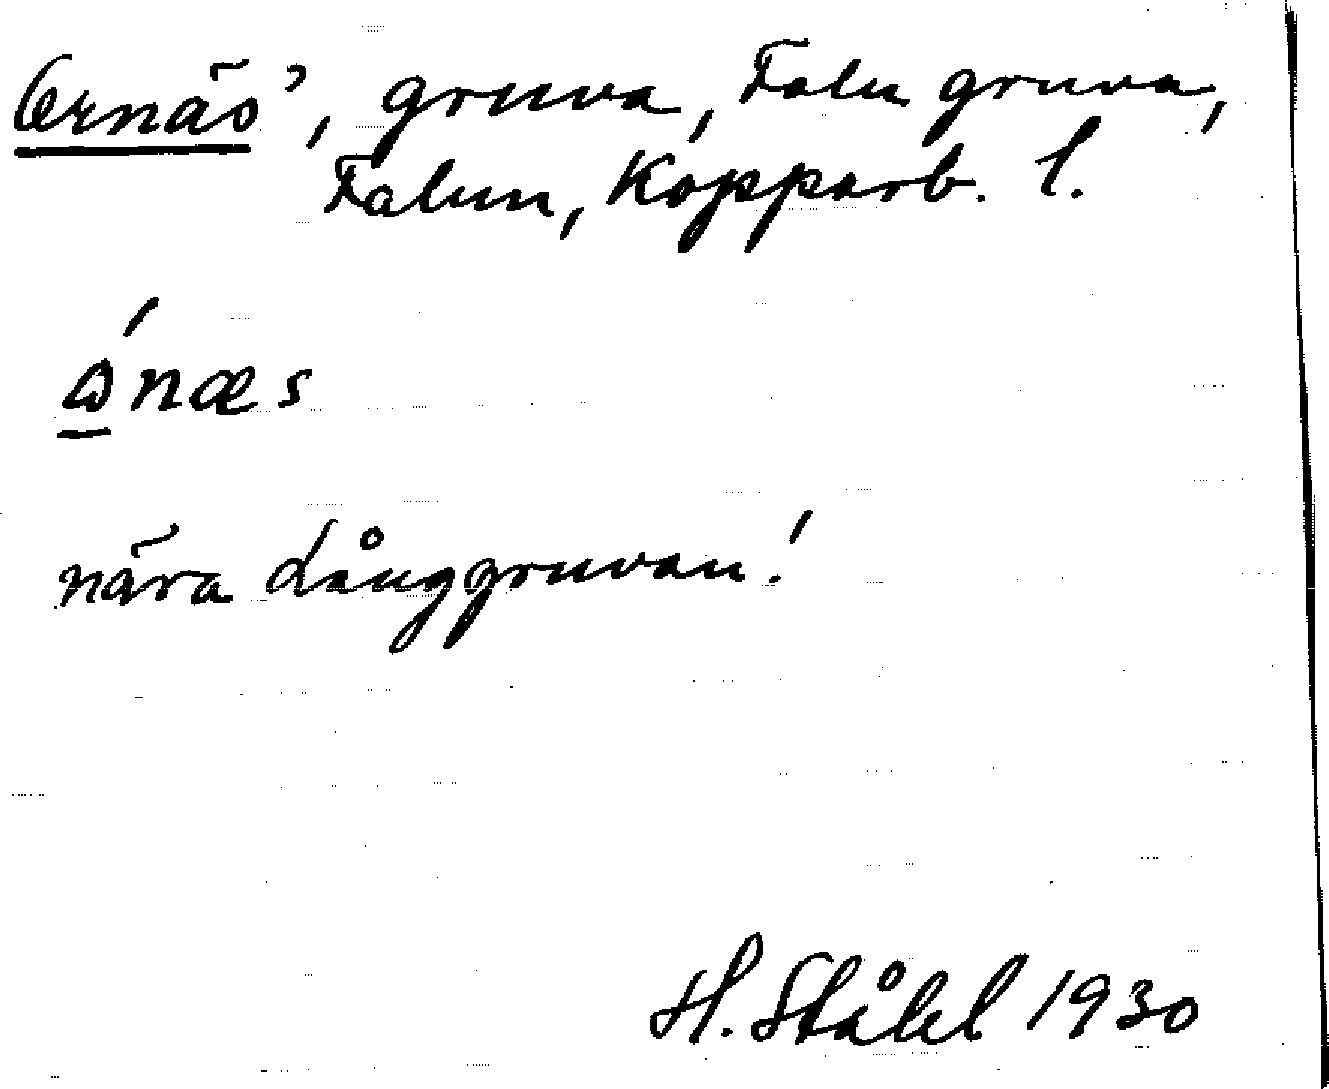 Ornäs', gruva, Falu gruva,
Falun, Kopparb. l.
nära Långgruvan!
H. Ståhl 1930